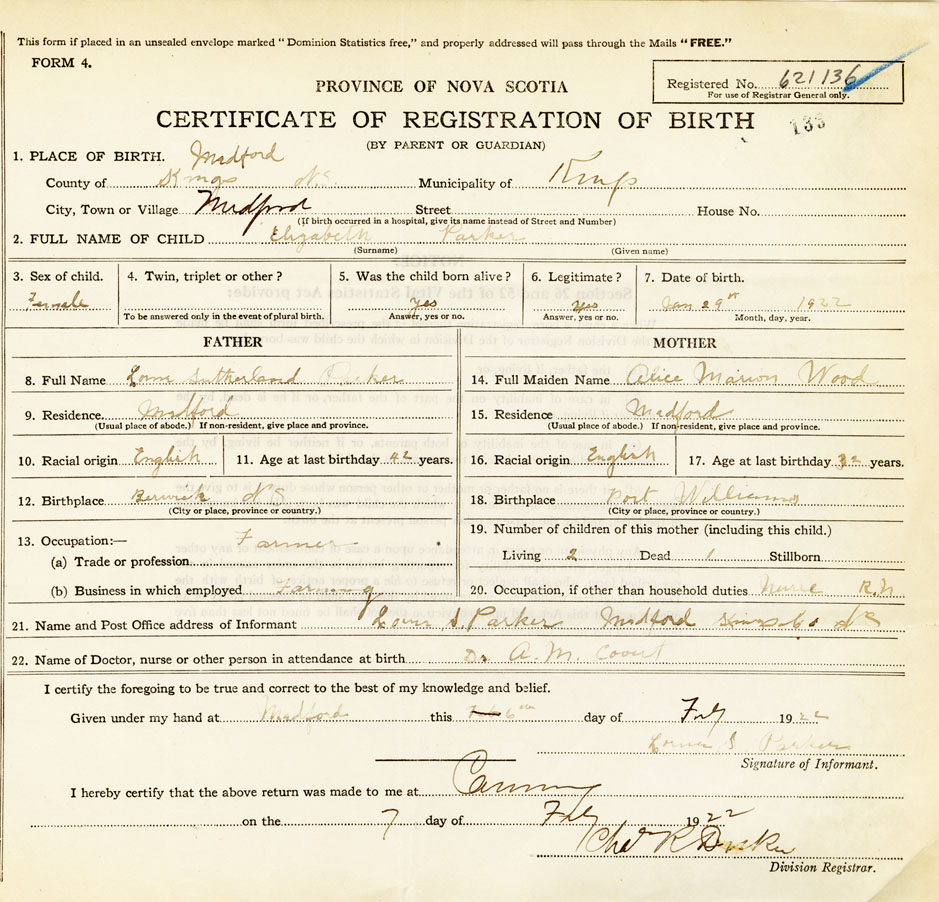 This form if placed in an unsealed envelope marked "Dominion Statistics free," and properly addressed will pass through the Mails "FREE."
FORM 4.
Registered No. 621136
For use of Registrar General only.
PROVINCE OF NOVA SCOTIA
CERTIFICATE OF REGISTRATION OF BIRTH 133
(BY PARENT OR GUARDIAN)
1. PLACE OF BIRTH. Medford
County of Kings N.S Municipality of Kings
City, Town or Village Medford Street House No.
(If birth occurred in a hospital, give its name instead of Street and Number)
2. FULL NAME OF CHILD Elizabeth Parker
(Surname) (Given name)
3. Sex of child. 4. Twin, triplet or other? 5. Was the child born alive? 6. Legitimate? 7. Date of birth.
Female yes yes Jan 29 1922
To be answered only in the event of plural birth. Answer, yes or no. Answer, yes or no. Month, day, year.
FATHER MOTHER
8. Full Name Sutherland Parker 14. Full Maiden Name Alice Marion Wood
9. Residence Medford 15. Residence Medford
(Usual place of abode.) If non-resident, give place and province. (Usual place of abode.) If non-resident, give place and province.
10. Racial origin English 11. Age at last birthday 42 years. 16. Racial origin English 17. Age at last birthday 32 years.
12. Birthplace Berwick NS 18. Birthplace Port Williams
(City or place, province or country.) (City or place, province or country.)
13. Occupation:— Farmer 19. Number of children of this mother (including this child.)
(a) Trade or profession Living 2 Dead 1 Stillborn
(b) Business in which employed Farming 20. Occupation, if other than household duties Nurse R.N.
21. Name and Post Office address of Informant S. Parker Medford Kings Co NS
22. Name of Doctor, nurse or other person in attendance at birth Dr A. M.
I certify the foregoing to be true and correct to the best of my knowledge and belief.
Given under my hand at Medford this 6th day of Feby 1922
S. Parker
Signature of Informant.
I hereby certify that the above return was made to me at Canning
on the 7 day of Feby 1922
Chas R
Division Registrar.